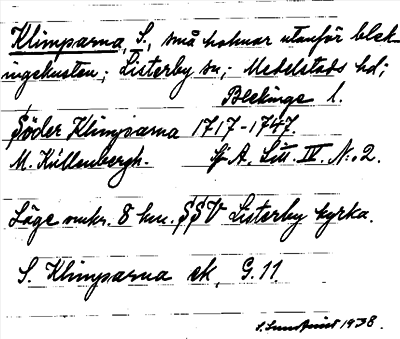 Klimparna, S., små holmar utanför blek-
ingekusten; Listerby sn; Medelstads hd;
Blekinge l.
Söder Klimparna 1717-1747.
M. Küllenbergh. Sj A. Litt. IV. N:o 2.
Läge omkr. 8 km. SSV Listerby kyrka.
S. Klimparna ek, G. 11
1938.